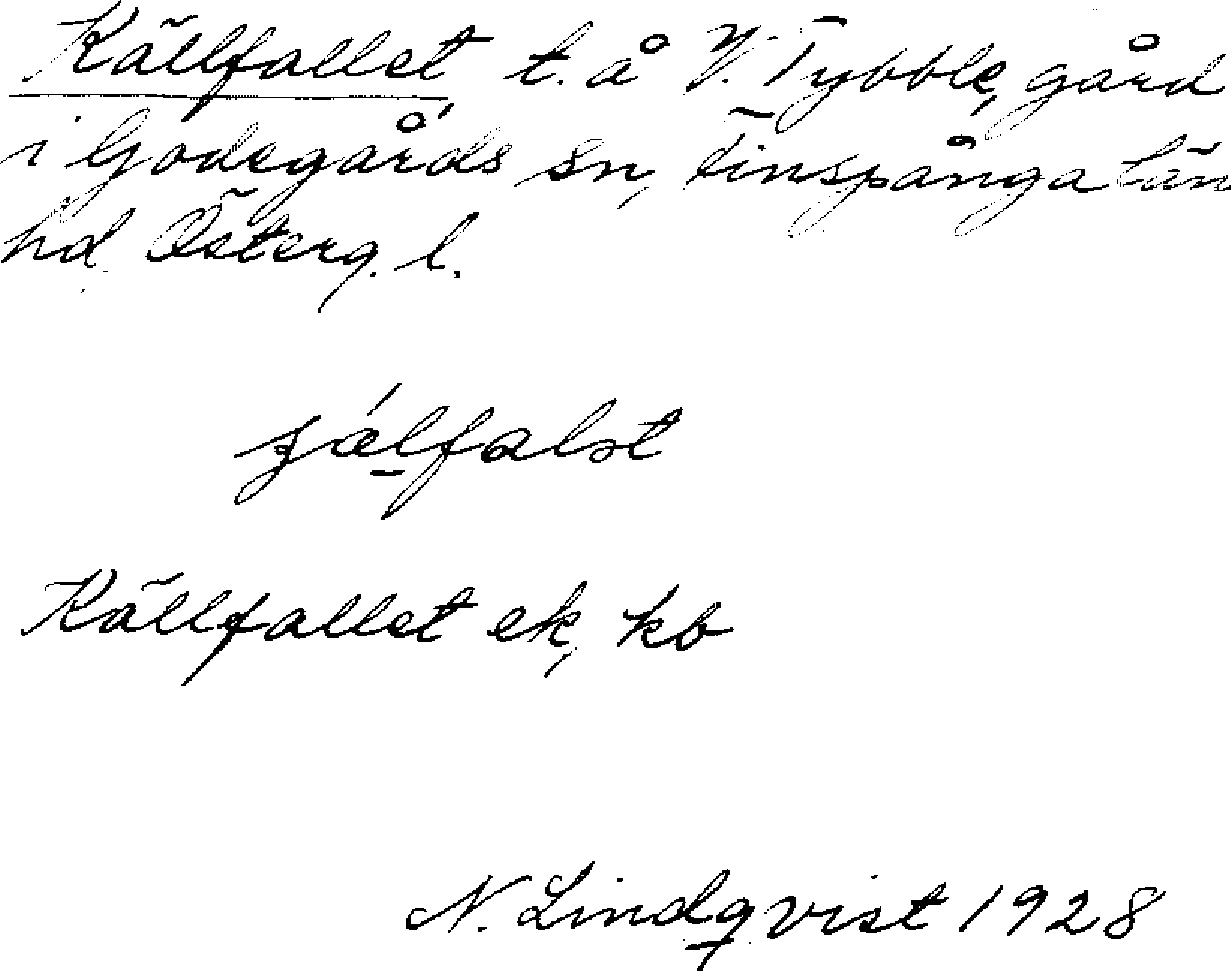 Källfallet, t. å V. Tybble, gård
i Godegårds sn, Finspånga län
hd. Österg. l.
Källfallet ek, kb
N. Lindqvist 1928